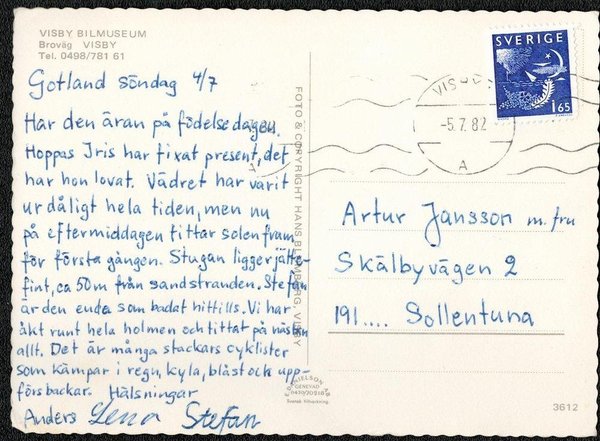 VISBY BILMUSEUM
Broväg VISBY
Tel. 0498/781 61
Gotland söndag 4/7
Har den äran på födelsedagen.
Hoppas Iris har fixat present, det
har hon lovat. Vädret har varit
urdåligt hela tiden, men nu
på eftermiddagen tittar solen fram
för första gången. Stugan ligger jätte-
fint, ca 50m från sandstranden. Stefan
är den enda som badat hittills. Vi har
åkt runt hela holmen och tittat på nästan
allt. Det är många stackars cyklister
som kämpar i regn, kyla, blåst och upp-
försbackar. Hälsningar
Anders Lena Stefan
FOTO & COPYRIGHT HANS BLOMBERG, VISBY
DANIELSON
GENEVAD
0430/70218
Svensk tillverkning
SVERIGE
165
VISBY
-5.7.82
A
Artur Jansson m. fru
Skälbyvägen 2
191.... Sollentuna
3612